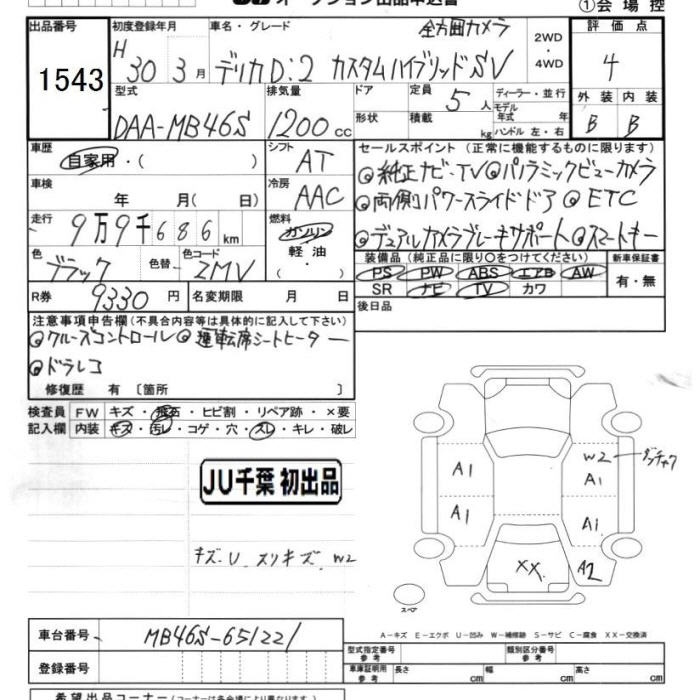 オークション出品申込書
①会場控
出品番号 初度登録年月 車名・グレード 全方囲カメラ 2WD・4WD 評価点
1543 H30 3月 デリカD:2 カスタムハイブリッドSV 4
型式 排気量 ドア 定員 5人 ディーラー・並行 外装 内装
DAA-MB46S 1200cc 形状 積載 kg モデル年式 年 ハンドル 左・右 B B
車歴 シフト セールスポイント (正常に機能するものに限ります)
自家用・( ) AT ◎純正ナビ・TV ◎パノラミックビューカメラ
車検 年 月(日) 冷房 AAC ◎両側パワースライドドア ◎ETC
走行 9万9千686km 燃料 ガソリン・軽油・ ◎デュアルカメラブレーキサポート ◎スマートキー
色 ブラック 色替 色コード ZMV
装備品 (純正品に限り○をつけてください) 新車保証書
PS PW ABS エアB AW 有・無
SR ナビ TV カワ
R券 9330円 名変期限 月 日 後日品
注意事項申告欄 (不具合内容等は具体的に記入して下さい)
◎クルーズコントロール ◎運転席シートヒーター
◎ドラレコ
修復歴 有〔箇所 〕
検査員 FW キズ・飛石・ヒビ割・リペア跡・×要
記入欄 内装 キズ・汚レ・コゲ・穴・スレ・キレ・破レ
JU千葉 初出品
キズ.U スリキズ.W2
A1 W2
A1
A1 A1
XX. A2
スペア
A-キズ E-エクボ U-凹み W-補修跡 S-サビ C-腐食 XX-交換済
車台番号 MB46S-651221
登録番号
型式指定番号 参考 類別区分番号 参考
車庫証明用 参考 長さ cm 幅 cm 高さ cm
希望出品コーナー (コーナーは各会場により異なります)